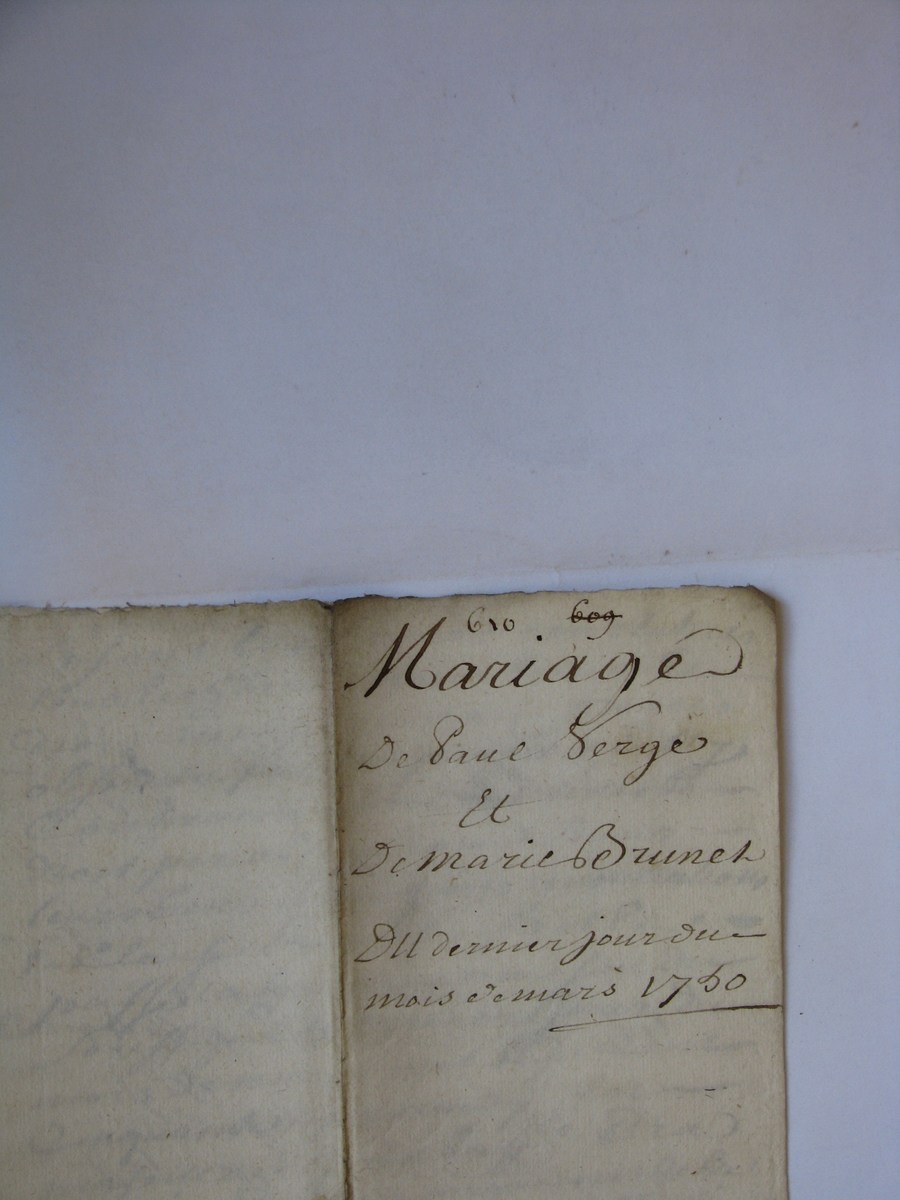 610 609
Mariage
De Paul Verge
Et
De marie Brunet
DU dernier jour du
mois de mars 1750